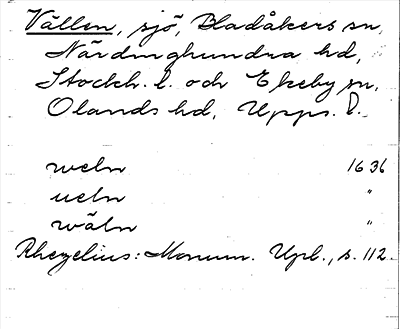 Vällen, sjö, Bladåkers sn,
Närdinghundra hd,
Stockh. l. och Ekeby sn,
Olands hd, Upps. l.
weln 1636
ueln "
wäln "
Rhezelius: Monum. Upl., s. 112.